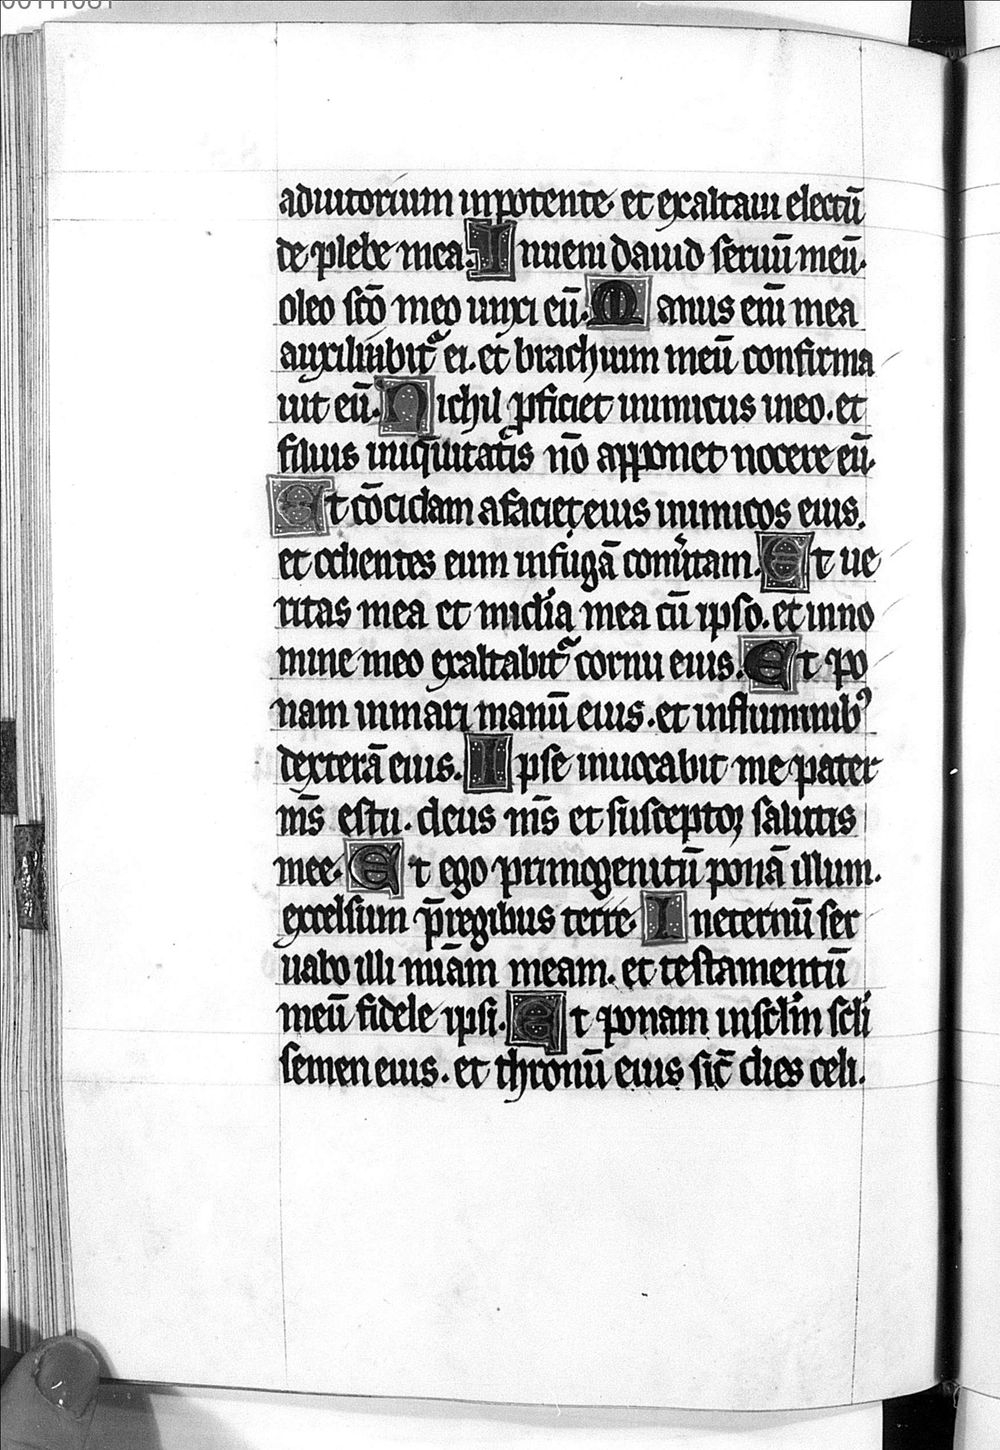 adiutorium inpotente. et exaltaui electū
de plebe mea. Inueni dauid seruū meū.
oleo scō meo unxi eū. Manus eni̅ mea
auxiliabit᷑ ei. et brachium meū confirma
uit eū. Nichil ꝓficiet inimicus ineo. et
filius iniq̅uitatis nō apponet nocere eū.
Et cōcidam afacie eius inimicos eius.
et odientes eum infugā conu̓tam. Et ue
ritas mea et mi̅dia mea cū ipso. et inno
mine meo exaltabit᷑ cornu eius. Et po
nam inmari manū eius. et influminibꝰ
dexterā eius. Ipse inuocabit me pater
m̅s estu. deus m̅s et susceptoꝛ salutis
mee. Et ego primogenitū ponā illum.
excelsum p̅regibus terre. Ineternū ser
uabo illi mi̅am meam. et testamentū
meū fidele ipsi. Et ponam insclm̅ scli̅
semen eius. et thronū eius sic̅ dies celi.